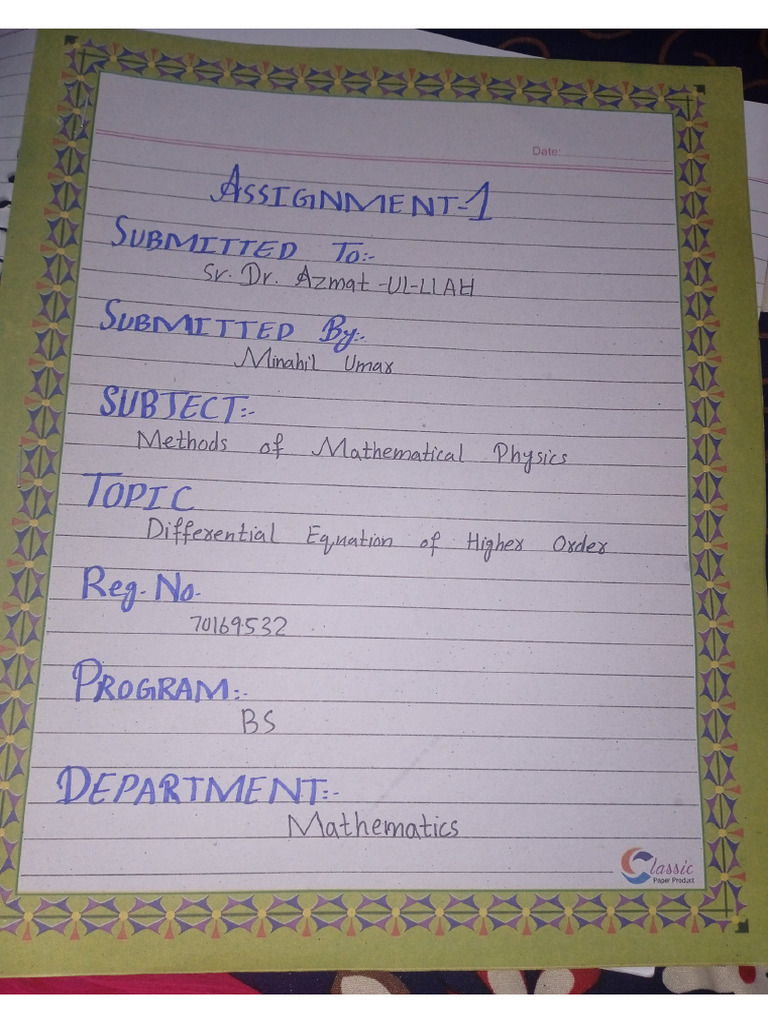 Date:
ASSIGNMENT-1
SUBMITTED To:-
Sr. Dr. Azmat-Ul-LLAH
SUBMITTED By:-
Minahil Umar
SUBJECT:-
Methods of Mathematical Physics
TOPIC
Differential Equation of Higher Order
Reg. No.
70169532
PROGRAM:-
BS
DEPARTMENT:-
Mathematics
Classic
Paper Product